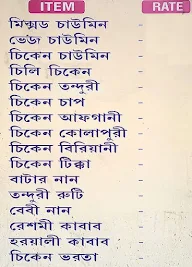 ITEM RATE
মিক্সড চাউমিন -
ভেজ চাউমিন -
চিকেন চাউমিন -
চিলি চিকেন -
চিকেন তন্দুরী -
চিকেন চাপ -
চিকেন আফগানী -
চিকেন কোলাপুরী -
চিকেন বিরিয়ানী -
চিকেন টিক্কা -
বাটার নান -
তন্দুরী রুটি -
বেবী নান -
রেশমী কাবাব -
হরয়ালী কাবাব -
চিকেন ভরতা -